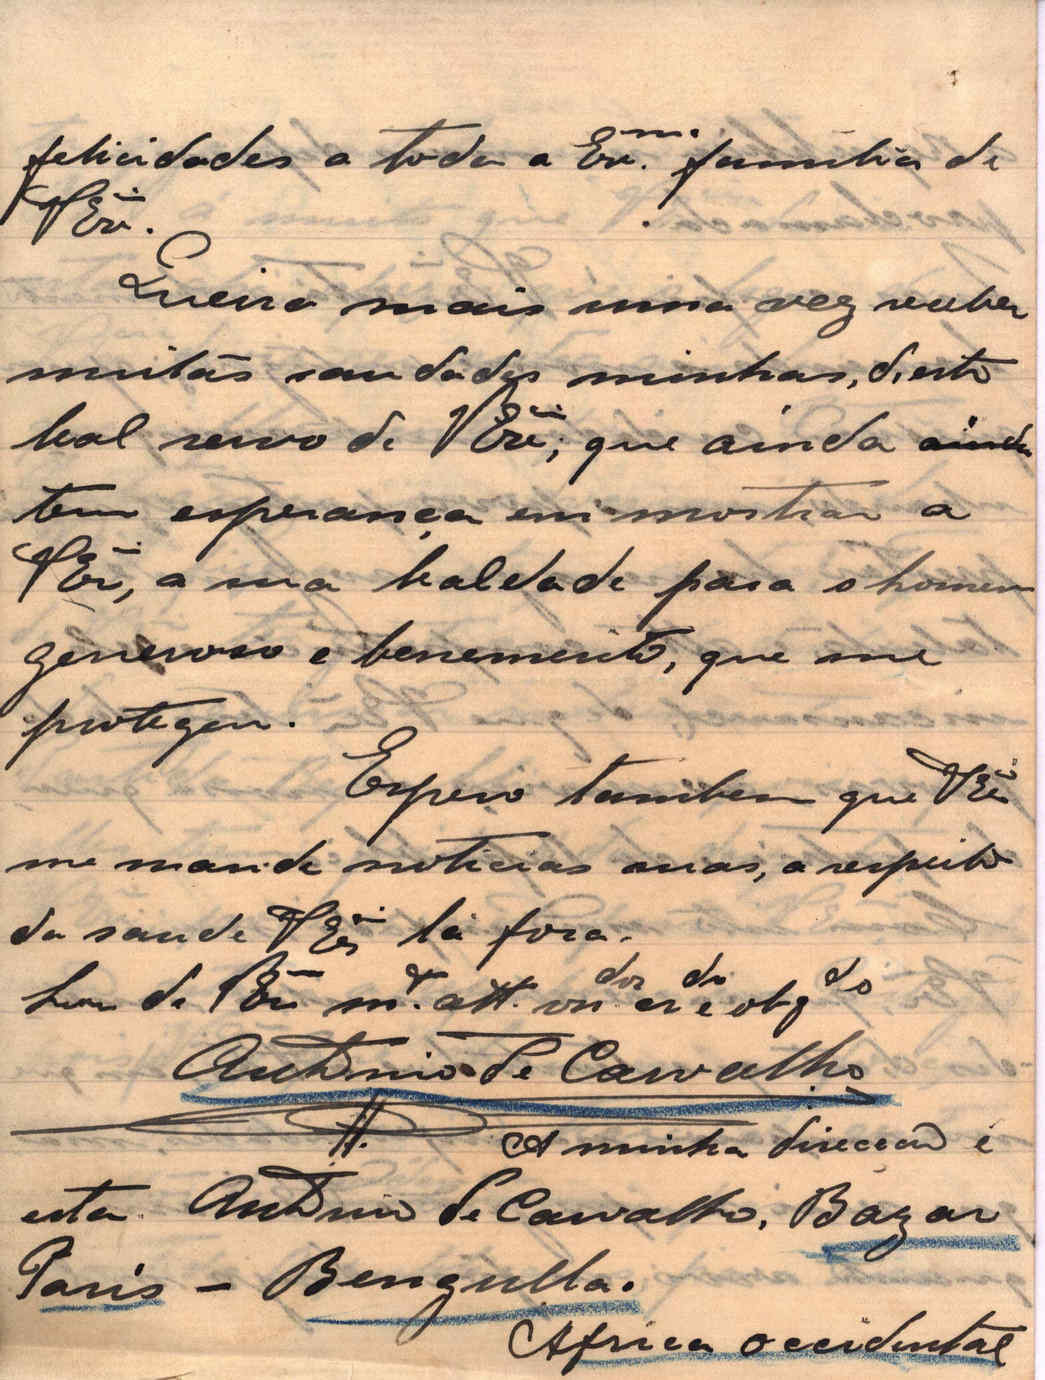 felicidades a toda a Exma. familia de
V Exa.
Queira mais uma vez receber
muitas saudades minhas, d'este
leal servo de V Exa, que ainda ainda
tem esperança em mostrar a
V Exa, a sua lealdade para o homem
generoso e benemerito, que me
protegeu.
Espero tambem que V Exa
me mande noticias suas, a respeito
da saude V Exa lá fora.
Sou de V Exa mto. att. vndor crdo e obgdo
Antonio de Carvalho
A minha direccão é
esta Antonio de Carvalho, Bazar
Paris – Benguella.
Africa Occidental